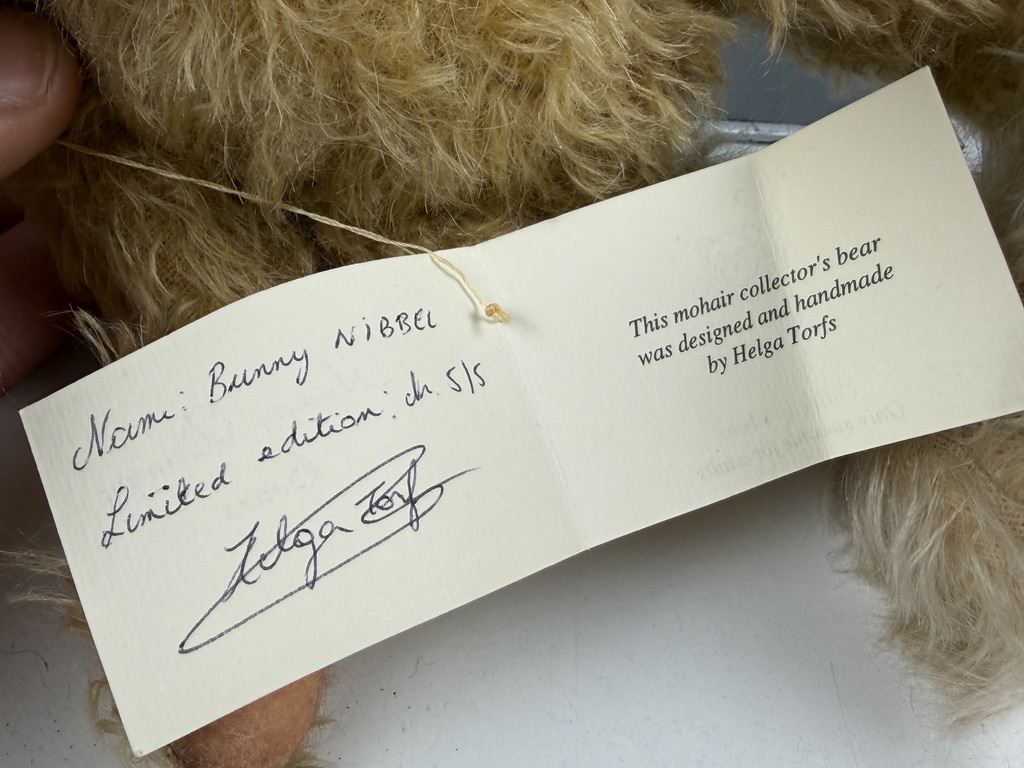 Name: Bunny NiBBEL
Limited edition: nr. 5/5
Helga Torfs
This mohair collector's bear
was designed and handmade
by Helga Torfs